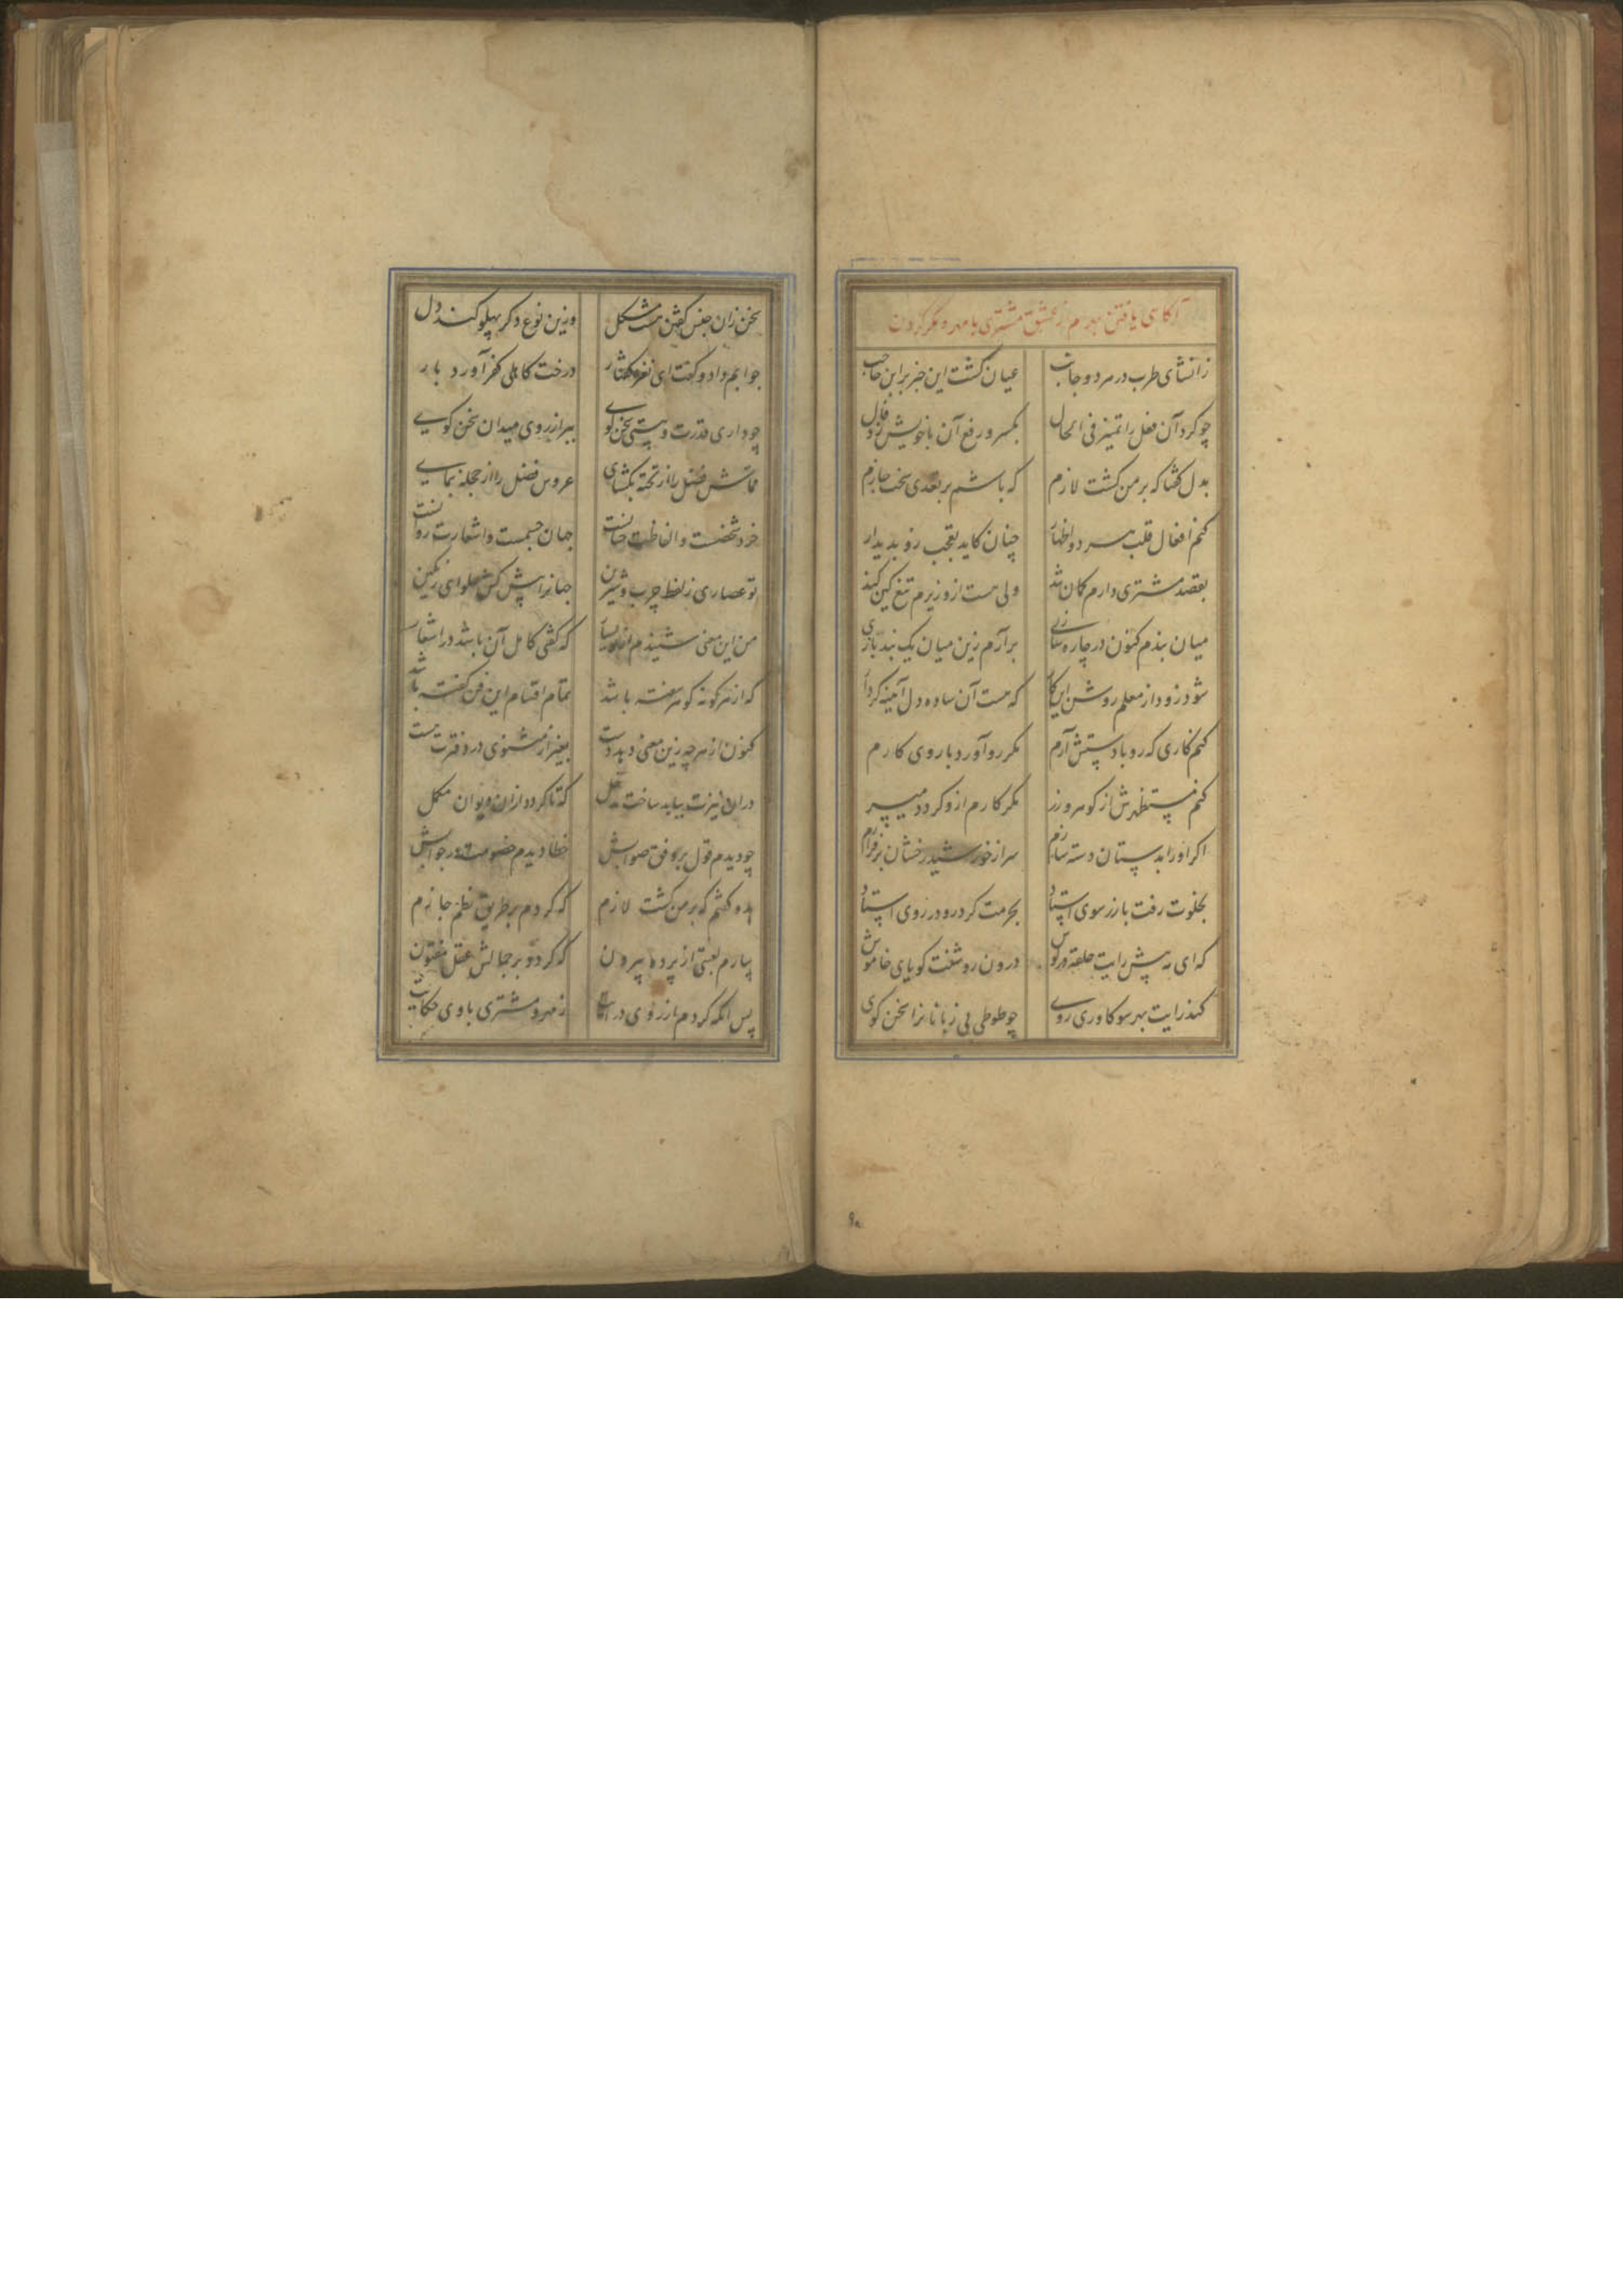 آکاهی یافتن بهرام ز عشق مشتری با مهر و مکر کردن
ز انشای طرب در هر دو جانب عیان کشت این خبر بر ابن حاجب
چو کرد آن فعل را تمییز فی الحال بکسر و رفع آن با خویش زد فال
بدل کفتا که بر من کشت لازم که باشم بر تعدی سخت جازم
کنم افعال قلب هر دو اظهار چنان کاید تعجب رو بدیدار
بقصد مشتری دارم کمان شد ولی هست از وزیرم تیغ کین کند
میان بندم کنون در چاره سازی برآرم زین میان یک بند بازی
شود زود از معلم روشن این کار که هست آن ساده دل آینه کردار
کنم کاری که رو با دستش آرم مکر رو آورد با روی کارم
کنم مستظهرش از کوهر و زر مکر کارم ازو کردد میسر
اکر او را بدستان دسته سازم سر از خورشید رخشان برفرازم
بخلوت رفت با زر سوی استاد بحرمت کرد رو در روی استاد
که ای به پیش رایت حلقه در کوش درون روشنت کویای خاموش
کند رایت بهر سو کاوری روی چو طوطی بی زبانانرا سخن کوی
سخن زان جنس کفتن هست مشکل وزین نوع دکر پهلو کند دل
جوابم داد و کفت ای نغز کفتار درخت کاهلی کفر آورد بار
چو داری قدرت و هستی سخن کوی ببر از روی میدان سخن کوی
قماش فضل را از تخته بکشای عروس فضل را از حجله بنمای
خرد شخصت و الفاظت حیاتست جهان جسمست و اشعارت روانست
تو عصاری ز لفظ چرب و شیرین جهانرا پیش کش حلوای رنکین
من این معنی شنیدم از بسیار که کفتی کامل آن باشد در اشعار
که از هر کونه کوهر سفته باشد تمام اقسام این فن کفته باشد
کنون از هرچه زین معنی دهد دست بغیر از مثنوی در دفترت هست
در آن نیزت بباید ساخت که تا کردد از آن دیوان مکمل
چو دیدم قول بر وفق صوابش خطا دیدم خصومت در جوابش
بدو کفتم که بر من کشت لازم که کردم بر طریق نظم جازم
بیارم لعبتی از پرده بیرون که کردد بر جمالش عقل مفتون
پس انکه کردم از روی درایت ز مهر و مشتری با وی حکایت